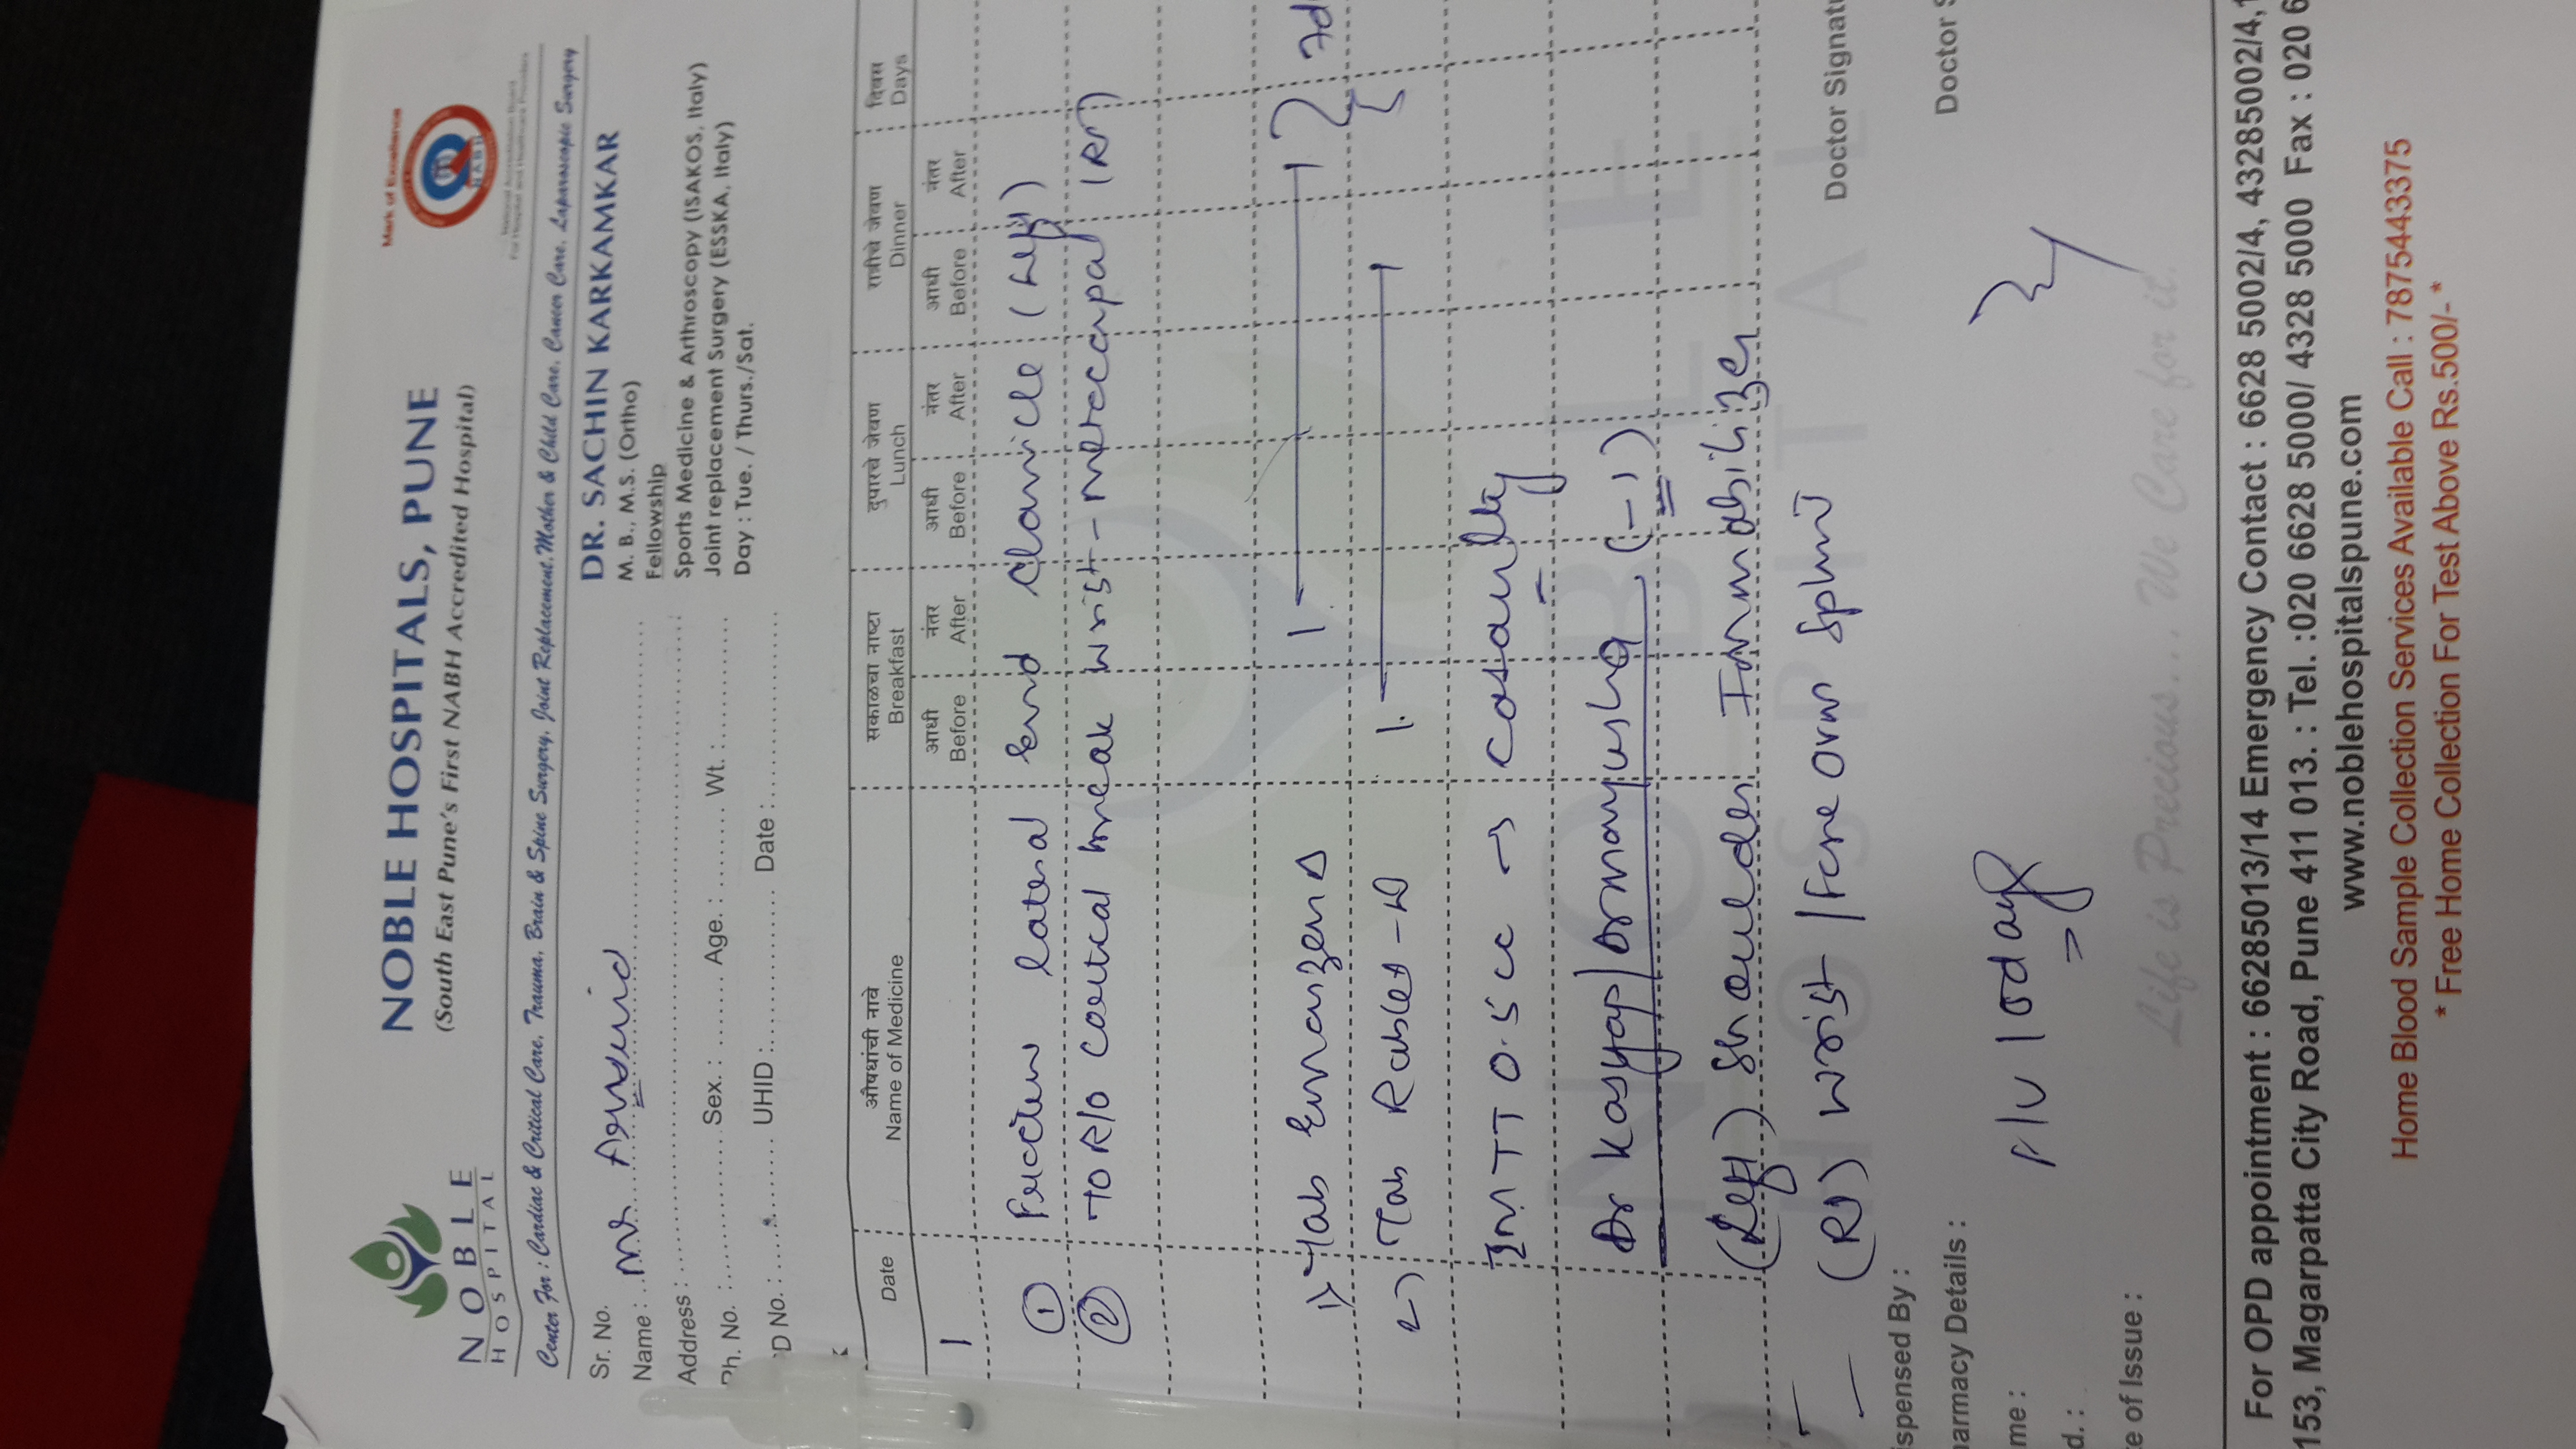 NOBLE
HOSPITAL
NOBLE HOSPITALS, PUNE
(South East Pune's First NABH Accredited Hospital)
Mark of Excellence
NABH
National Accreditation Board
For Hospital and Healthcare Providers
Center For : Cardiac & Critical Care, Trauma, Brain & Spine Surgery, Joint Replacement, Mother & Child Care, Cancer Care, Laparoscopic Surgery
Sr. No.
Name : Mr
Address :
Ph. No. : Sex. : Age. : Wt. :
D No. : UHID : Date :
DR. SACHIN KARKAMKAR
M. B., M.S. (Ortho)
Fellowship
Sports Medicine & Arthroscopy (ISAKOS, Italy)
Joint replacement Surgery (ESSKA, Italy)
Day : Tue. / Thurs./Sat.
औषधांची नावे सकाळचा नाष्टा दुपारचे जेवण रात्रीचे जेवण दिवस
Date Name of Medicine Breakfast Lunch Dinner Days
आधी नंतर आधी नंतर आधी नंतर
Before After Before After Before After
① lateral End Clavicle (Left)
② TO R/O Cortical break Wrist - Metacarpal (Rt)
1) Tab 1 1 7d
2) Tab Rablet-D 1 1
IM TT 0.5 cc → Casaulty
Dr Kasyap/Dr Mayusha (-1)
(Left) Shoulder Immobilizer
(Rt) Wrist /Fore arm Splint
Doctor Signatu
ispensed By :
armacy Details :
Doctor S
me :
F/U 10 days
d. :
e of Issue :
Life is Precious... We Care for it.
For OPD appointment : 66285013/14 Emergency Contact : 6628 5002/4, 43285002/4,
153, Magarpatta City Road, Pune 411 013. : Tel. :020 6628 5000/ 4328 5000 Fax : 020 6
www.noblehospitalspune.com
Home Blood Sample Collection Services Available Call : 7875443375
* Free Home Collection For Test Above Rs.500/- *